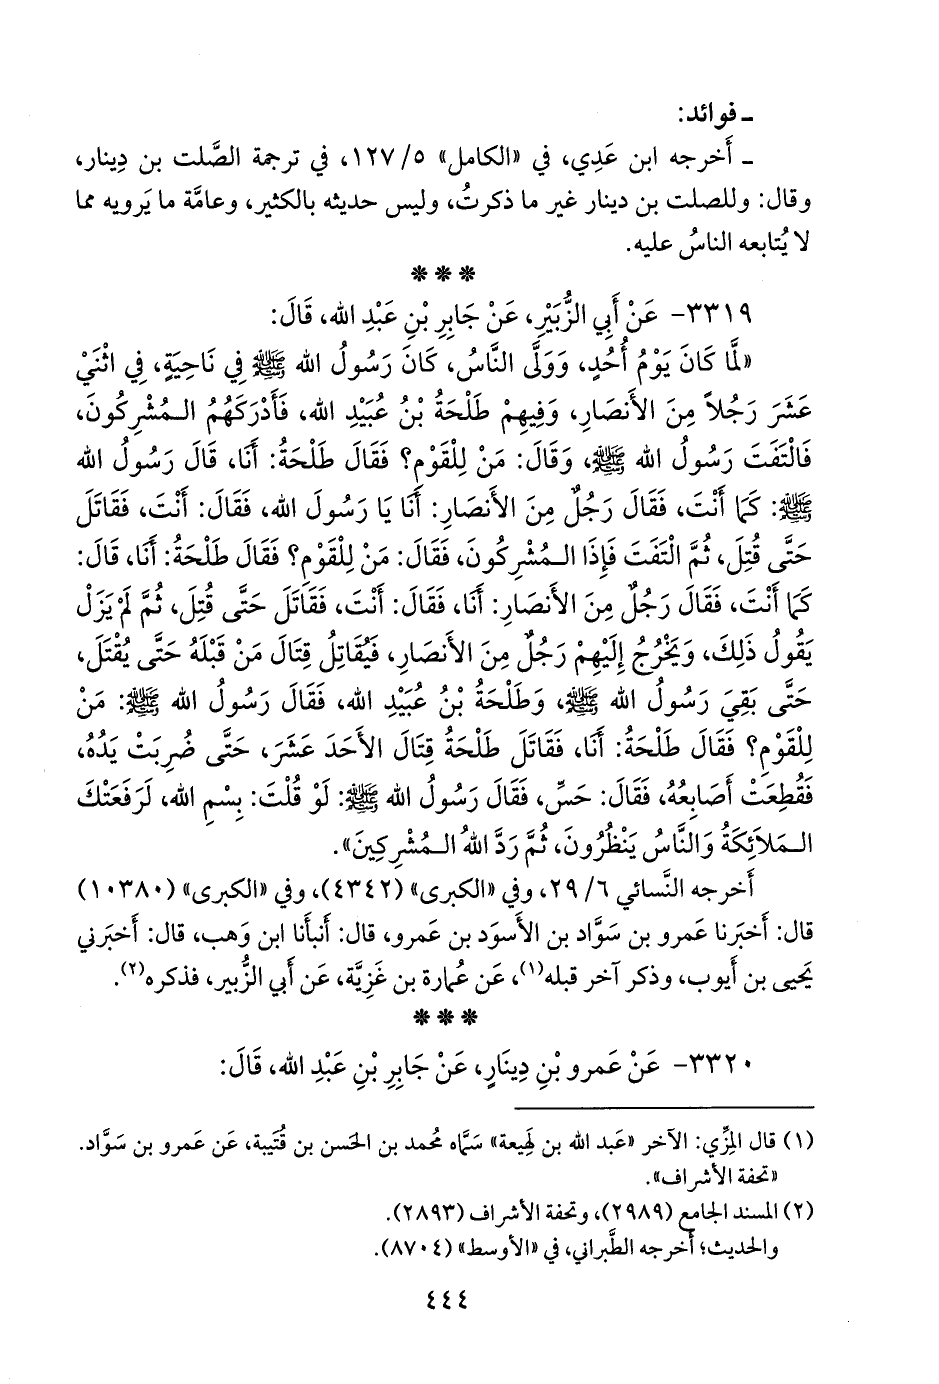 ـ فوائد:
ـ أَخرجه ابن عَدِي، في «الكامل» ٥/ ١٢٧، في ترجمة الصَّلت بن دِينار،
وقال: وللصلت بن دينار غير ما ذكرتُ، وليس حديثه بالكثير، وعامَّة ما يَرويه مما
لا يُتابعه الناسُ عليه.
***
٣٣١٩- عَنْ أَبِي الزُّبَيْرِ، عَنْ جَابِرِ بْنِ عَبْدِ الله، قَالَ:
«لَمَّا كَانَ يَوْمُ أُحُدٍ، وَوَلَّى النَّاسُ، كَانَ رَسُولُ الله ﷺ فِي نَاحِيَةٍ، فِي اثْنَيْ
عَشَرَ رَجُلاً مِنَ الأَنصَارِ، وَفِيهِمْ طَلْحَةُ بْنُ عُبَيْدِ الله، فَأَدْرَكَهُمُ الـمُشْرِكُونَ،
فَالْتَفَتَ رَسُولُ الله ﷺ، وَقَالَ: مَنْ لِلْقَوْمِ؟ فَقَالَ طَلْحَةُ: أَنَا، قَالَ رَسُولُ الله
ﷺ: كَمَا أَنْتَ، فَقَالَ رَجُلٌ مِنَ الأَنصَارِ: أَنَا يَا رَسُولَ الله، فَقَالَ: أَنْتَ، فَقَاتَلَ
حَتَّى قُتِلَ، ثُمَّ الْتَفَتَ فَإِذَا الـمُشْرِكُونَ، فَقَالَ: مَنْ لِلْقَوْمِ؟ فَقَالَ طَلْحَةُ: أَنَا، قَالَ:
كَمَا أَنْتَ، فَقَالَ رَجُلٌ مِنَ الأَنصَارِ: أَنَا، فَقَالَ: أَنْتَ، فَقَاتَلَ حَتَّى قُتِلَ، ثُمَّ لَمْ يَزَلْ
يَقُولُ ذَلِكَ، وَيَخْرُجُ إِلَيْهِمْ رَجُلٌ مِنَ الأَنصَارِ، فَيُقَاتِلُ قِتَالَ مَنْ قَبْلَهُ حَتَّى يُقْتَلَ،
حَتَّى بَقِيَ رَسُولُ الله ﷺ، وَطَلْحَةُ بْنُ عُبَيْدِ الله، فَقَالَ رَسُولُ الله ﷺ: مَنْ
لِلْقَوْمِ؟ فَقَالَ طَلْحَةُ: أَنَا، فَقَاتَلَ طَلْحَةُ قِتَالَ الأَحَدَ عَشَرَ، حَتَّى ضُرِبَتْ يَدُهُ،
فَقُطِعَتْ أَصَابِعُهُ، فَقَالَ: حَسِّ، فَقَالَ رَسُولُ الله ﷺ: لَوْ قُلْتَ: بِسْمِ الله، لَرَفَعَتْكَ
الـمَلاَئِكَةُ وَالنَّاسُ يَنْظُرُونَ، ثُمَّ رَدَّ اللهُ الـمُشْرِكِينَ».
أَخرجه النَّسائي ٦/ ٢٩، وفي «الكبرى» (٤٣٤٢)، وفي «الكبرى» (١٠٣٨٠)
قال: أَخبَرنا عَمرو بن سَوَّاد بن الأَسوَد بن عَمرو، قال: أَنبأَنا ابن وَهب، قال: أَخبَرني
يَحيى بن أَيوب، وذكر آخر قبله(١)، عَن عُمارة بن غَزِيَّة، عَن أَبي الزُّبير، فذكره(٢).
***
٣٣٢٠- عَنْ عَمرِو بْنِ دِينَارٍ، عَنْ جَابِرِ بْنِ عَبْدِ الله، قَالَ:
(١) قال المِزِّي: الآخر «عَبد الله بن لَهِيعة» سَمَّاه مُحمد بن الحَسن بن قُتَيبة، عَن عَمرو بن سَوَّاد.
«تحفة الأشراف».
(٢) المسند الجامع (٢٩٨٩)، وتحفة الأشراف (٢٨٩٣).
والحديث؛ أَخرجه الطَّبراني، في «الأوسط» (٨٧٠٤).
٤٤٤